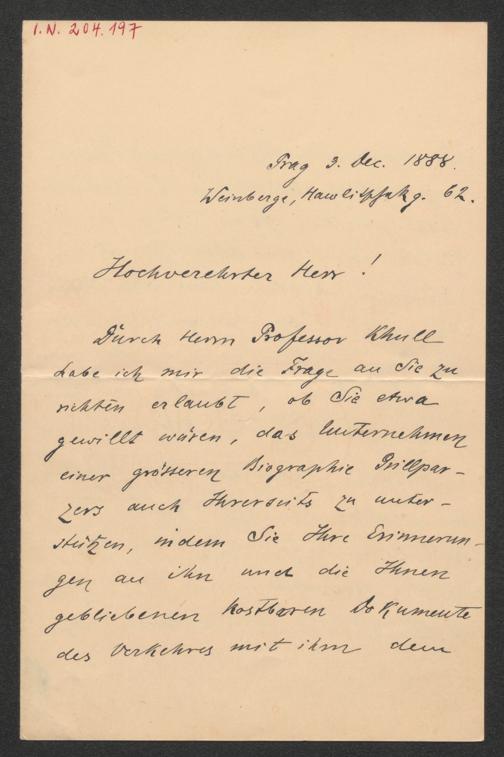 I.N. 204.197
Prag 3. Dec. 1888.
Weinberge, Hawlitschekg. 62.
Hochverehrter Herr!
Durch Herrn Professor Khull
habe ich mir die Frage an Sie zu
richten erlaubt, ob Sie etwa
gewillt wären, das Unternehmen
einer grösseren Biographie Grillpar-
zers auch Ihrerseits zu unter-
stützen, indem Sie Ihre Erinnerun-
gen an ihn und die Ihnen
gebliebenen kostbaren Dokumente
des Verkehres mit ihm dem